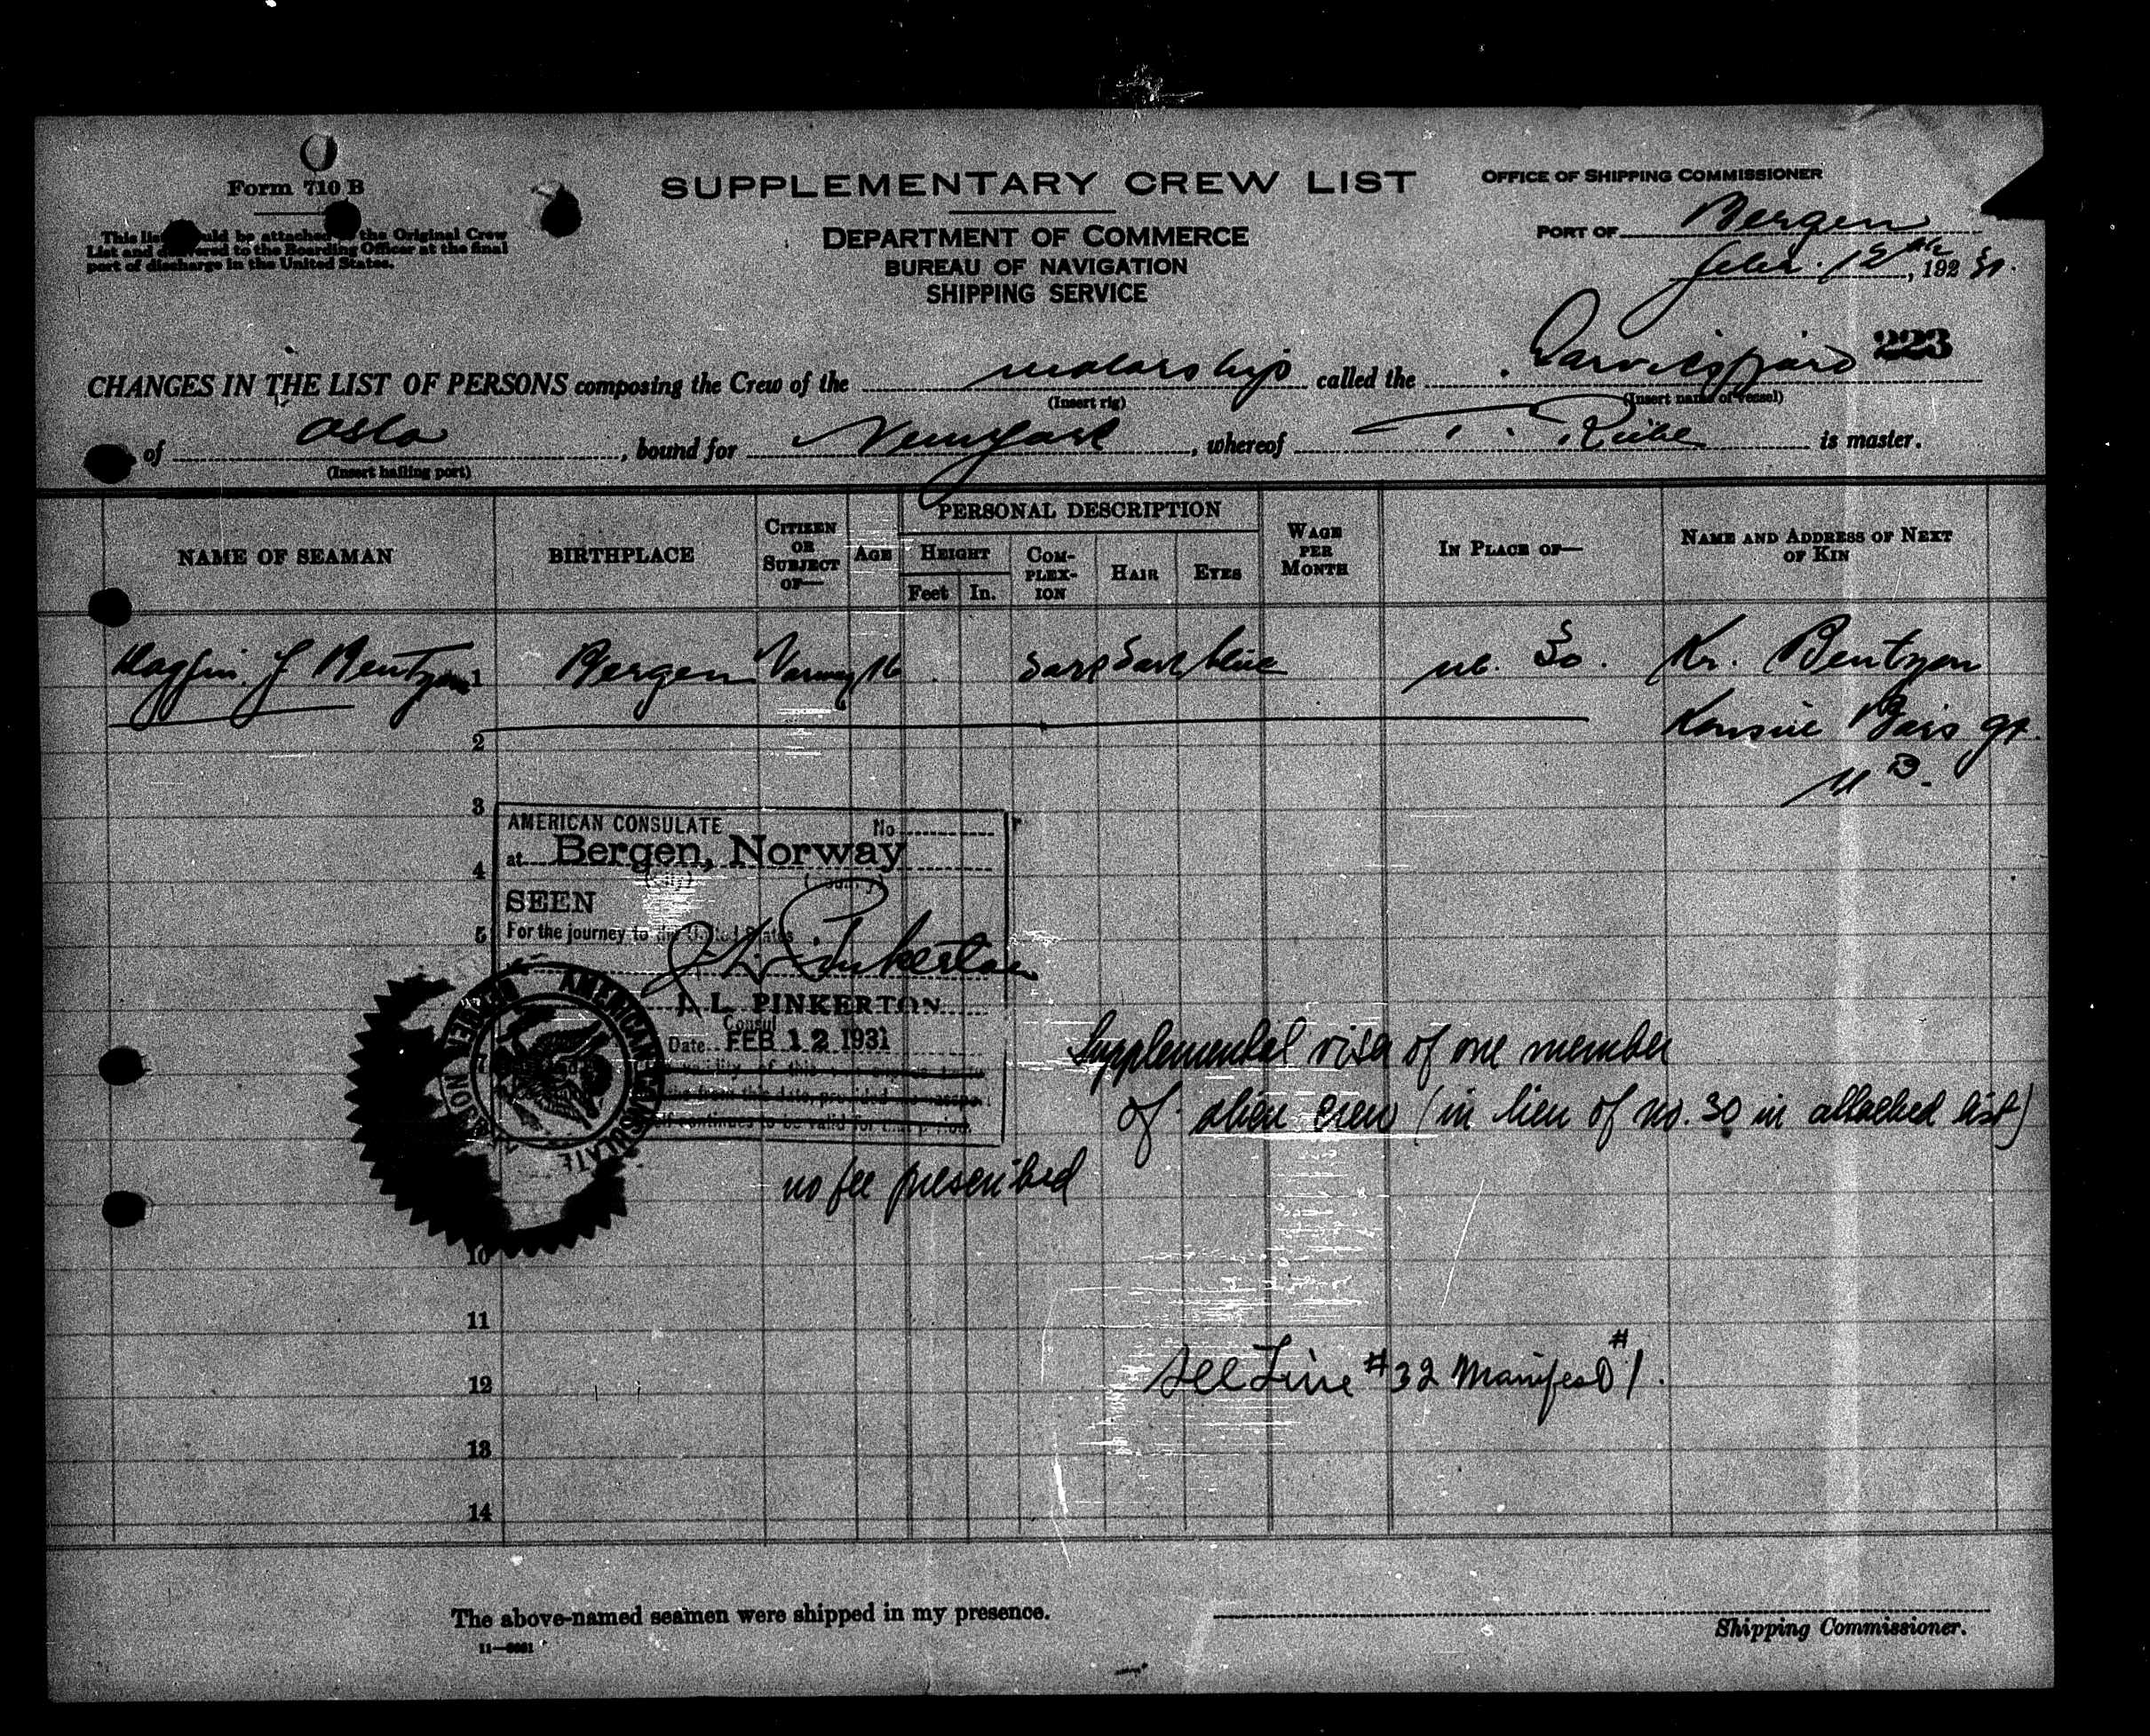 Form 710 B
SUPPLEMENTARY CREW LIST
OFFICE OF SHIPPING COMMISSIONER
This list be attached the Original Crew
List and to the Boarding Officer at the final
port of discharge in the United States.
DEPARTMENT OF COMMERCE
BUREAU OF NAVIGATION
SHIPPING SERVICE
PORT OF Bergen
febr. 12th, 192 31.
223
CHANGES IN THE LIST OF PERSONS composing the Crew of the motorship called the
(Insert rig) (Insert name of vessel)
of Oslo, bound for New York, whereof T. is master.
(Insert hailing port)
NAME OF SEAMAN
BIRTHPLACE
CITIZEN OR SUBJECT OF—
AGE
PERSONAL DESCRIPTION
HEIGHT
Feet In.
COM-PLEX-ION
HAIR
EYES
WAGE PER MONTH
IN PLACE OF—
NAME AND ADDRESS OF NEXT OF KIN
J Bentzon 1 Bergen Norway 16 dark dark blue no. 30. Kr. Bentzon
gt.
2
3
4
5
10
11
12
13
14
AMERICAN CONSULATE No
at Bergen, Norway
SEEN
For the journey to the United States
L. Pinkerton
L. PINKERTON
Consul
Date FEB 12 1931
AMERICAN CONSULATE
BERGEN NORWAY
Supplemental visa of one member
of alien crew (in lieu of no. 30 in attached list)
no fee prescribed
See Line #32 Manifest #1.
The above-named seamen were shipped in my presence.
Shipping Commissioner.